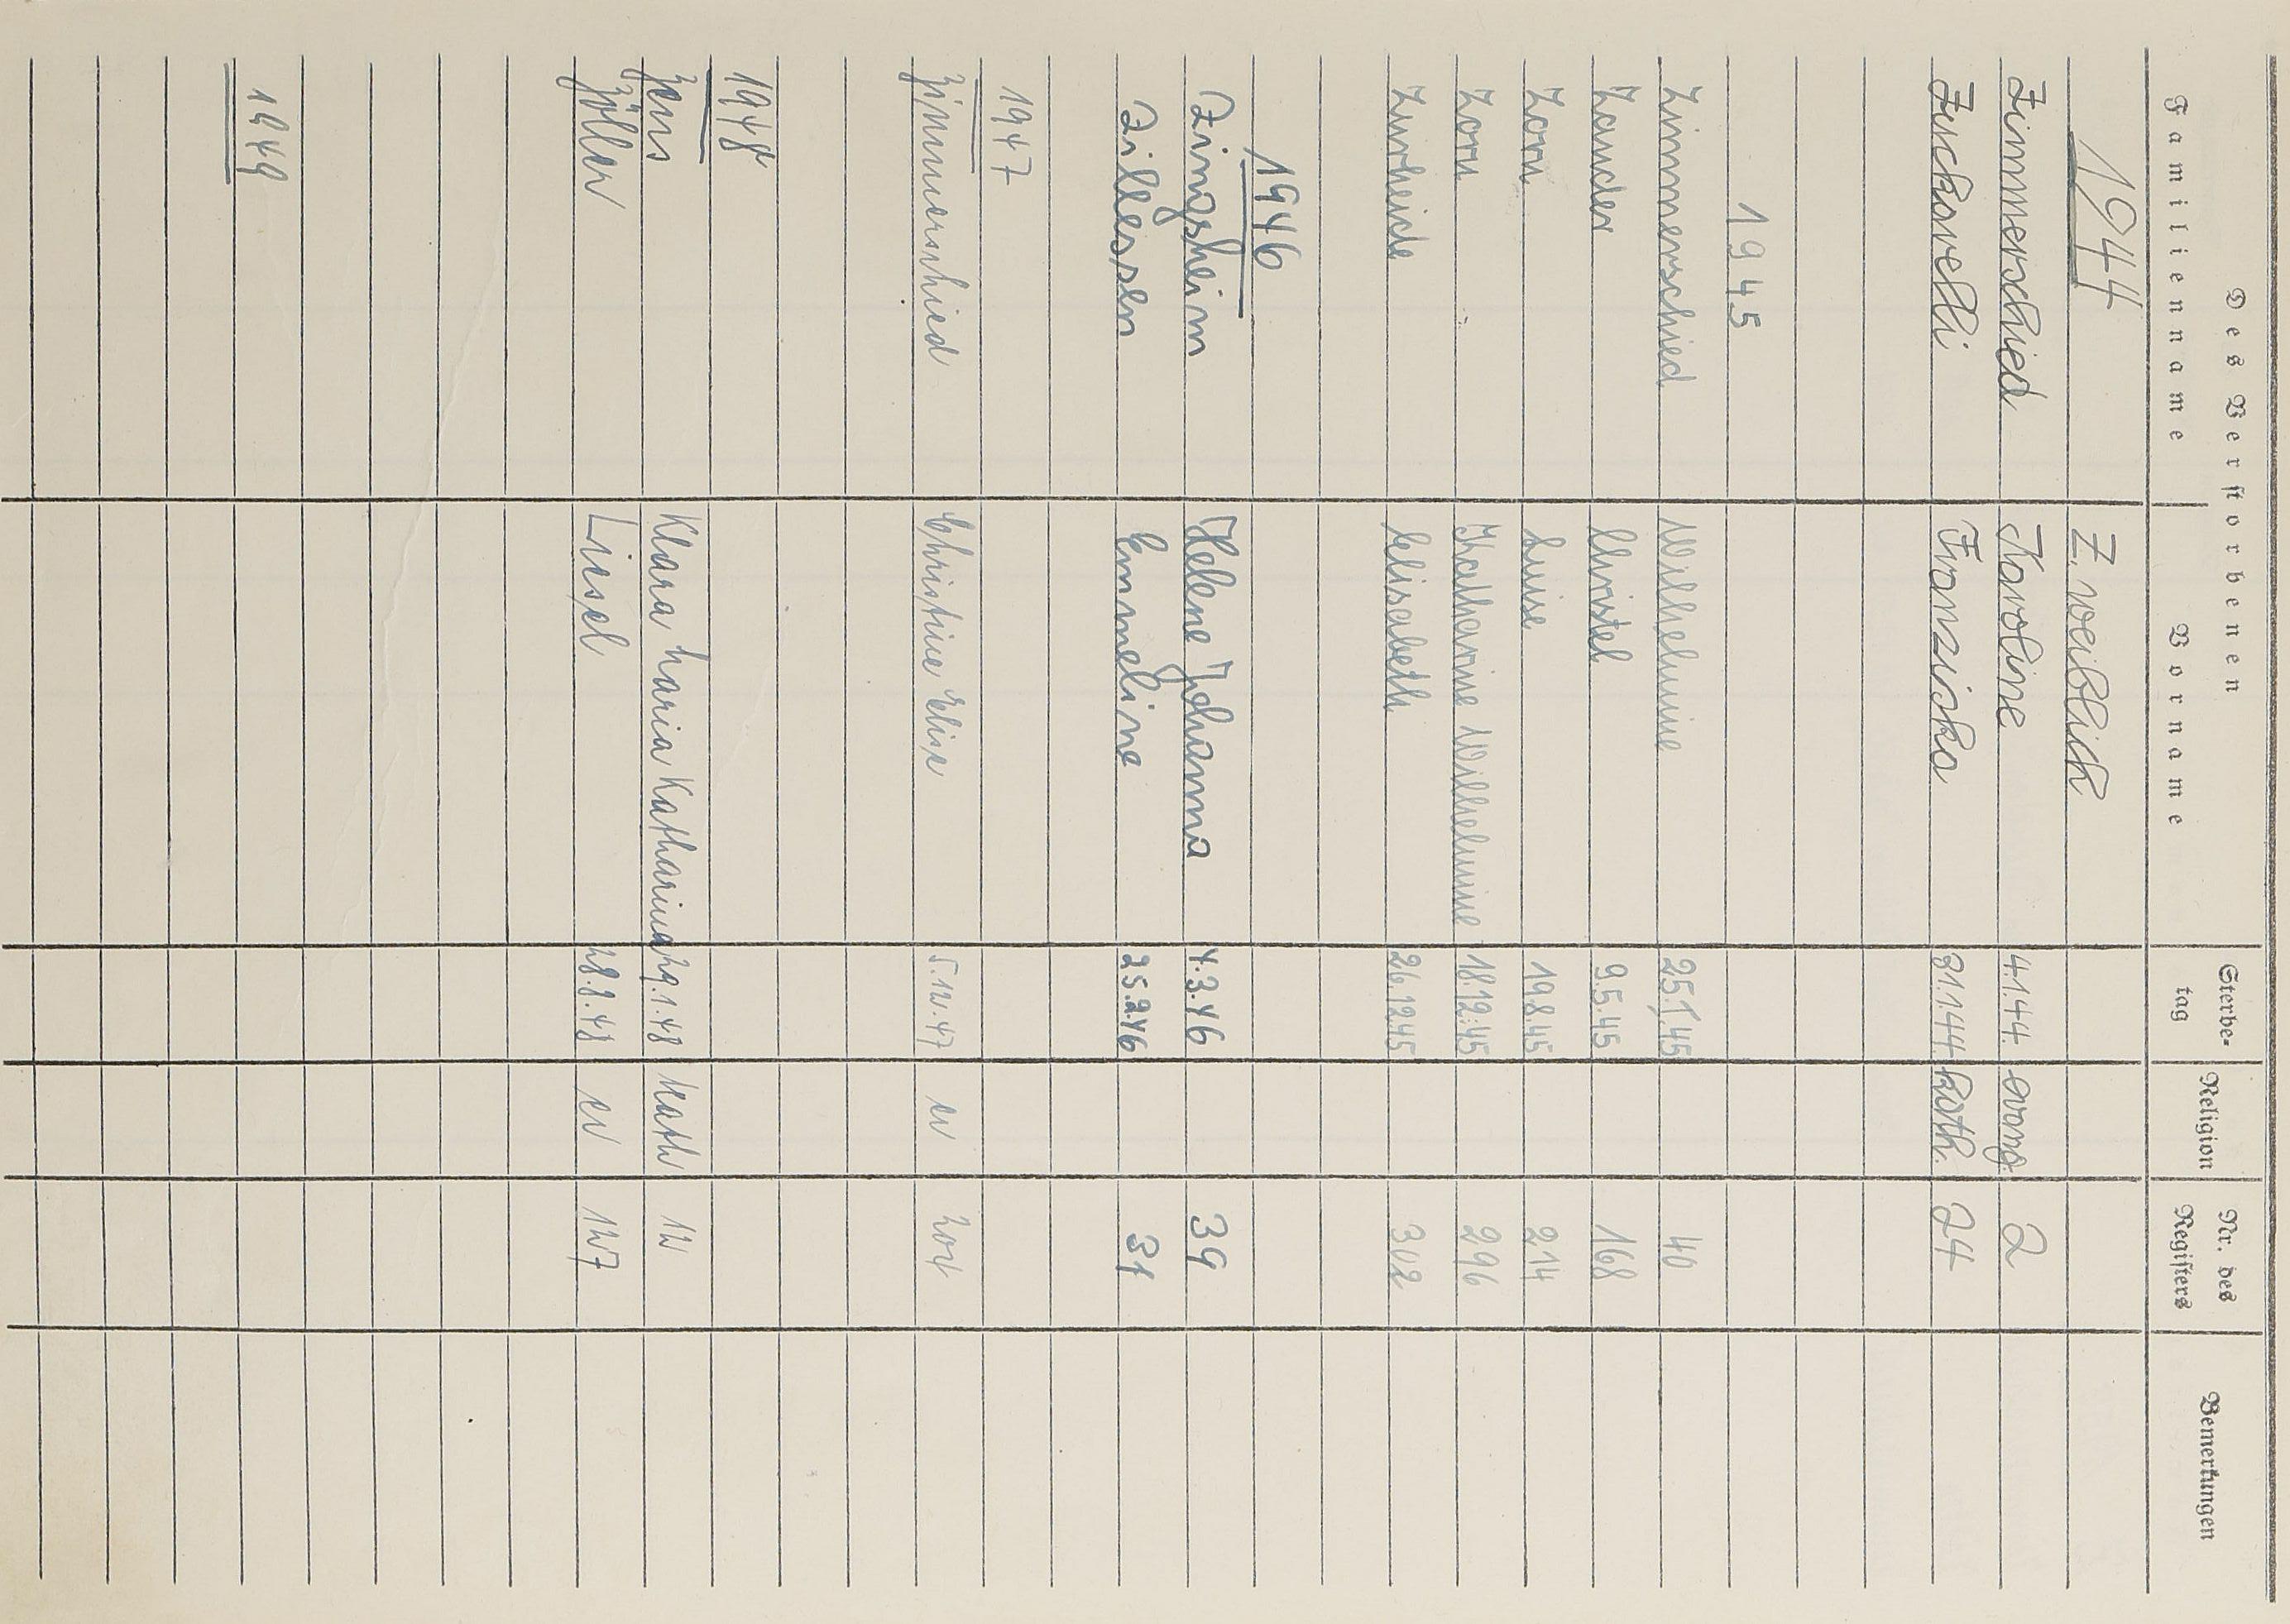 Des Verstorbenen Sterbe- Religion Nr. des Bemerkungen
Familienname Vorname tag Registers
1944 Z. weiblich
Zimmerschied Karoline 4.1.44. evang. 2
Zuckarelli Franziska 31.1.44. kath. 24
1945
Zimmerschied Wilhelmine 25.1.45 40
Zander Christel 9.5.45 168
Zorn Luise 19.8.45 214
Zorn Katharine Wilhelmine 18.12.45 296
Zurheide Elisabeth 26.12.45 302
1946
Zingsheim Helene Johanna 4.3.46 39
Zillessen Emmeline 25.2.46 31
1947
Zimmerschied Christine Elise 5.12.47 ev 204
1948
Zens Klara Maria Katharina 29.1.48 Kath 12
Zöller Liesel 28.8.48 ev 127
1949